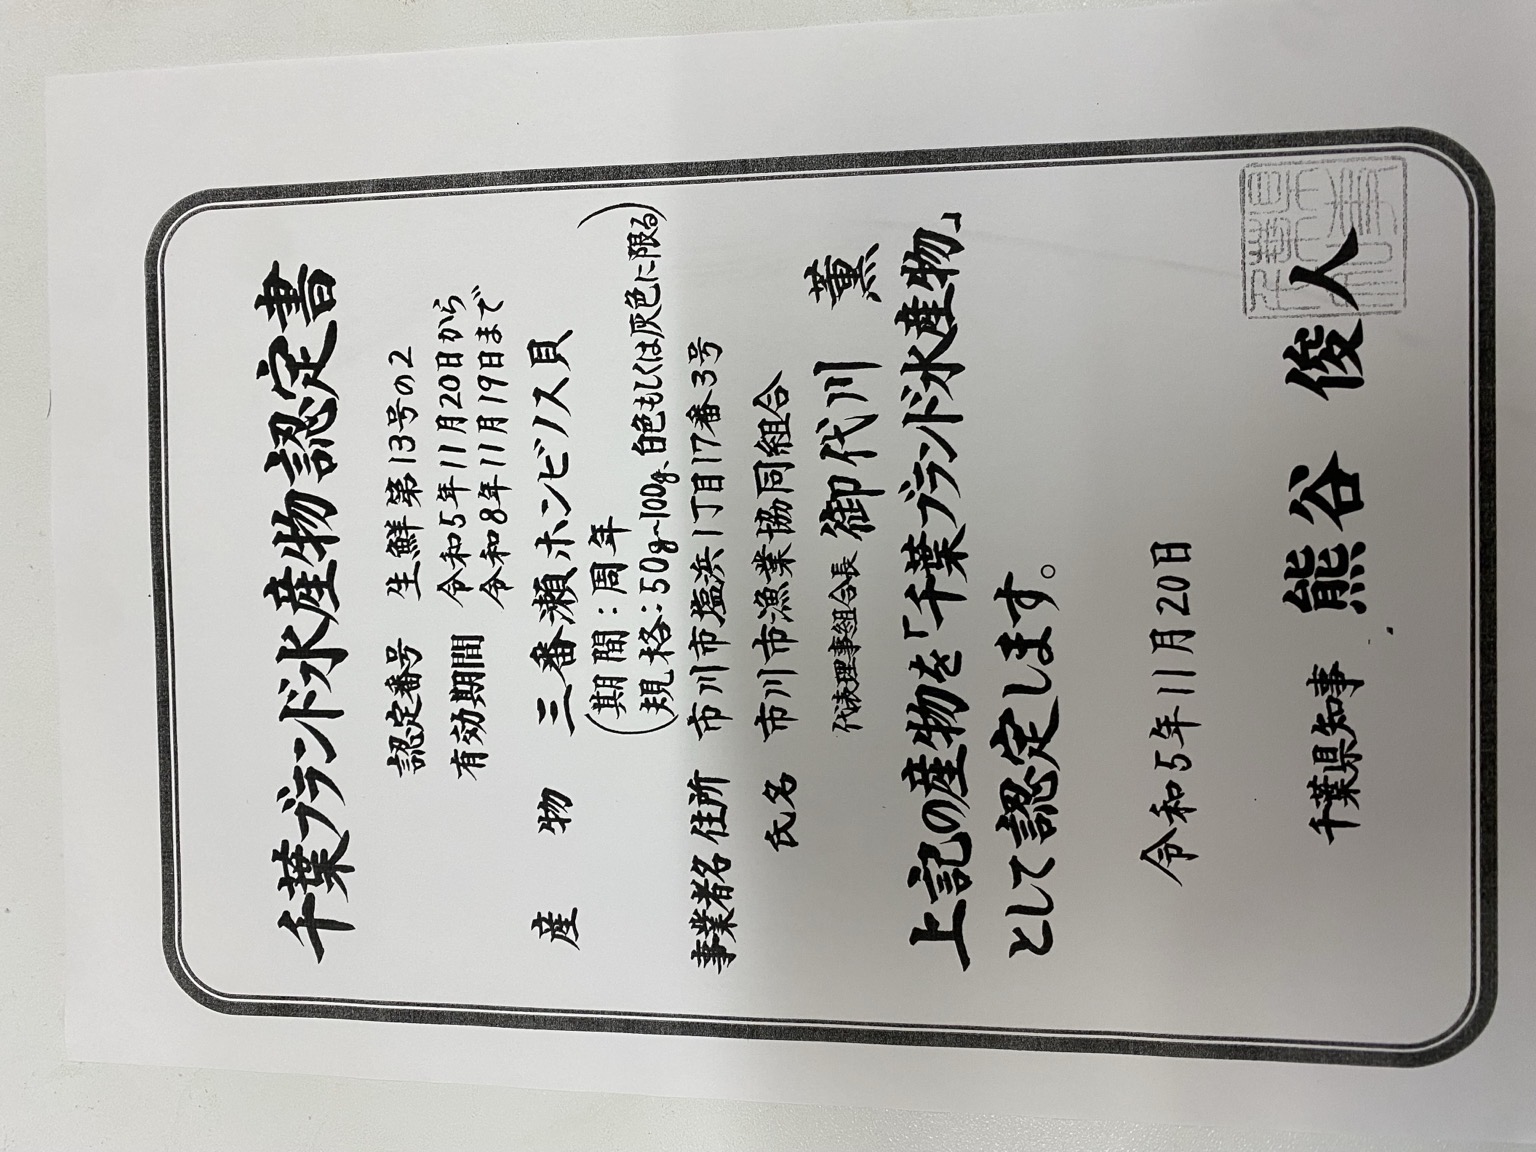 千葉ブランド水産物認定書
認定番号 生鮮第13号の2
有効期間 令和5年11月20日から
令和8年11月19日まで
産物 三番瀬ホンビノス貝
(期間:周年
規格:50g~100g、白色もしくは灰色に限る)
事業者名 住所 市川市塩浜1丁目17番3号
氏名 市川市漁業協同組合
代表理事組合長 御代川 薫
上記の産物を「千葉ブランド水産物」
として認定します。
令和5年11月20日
千葉県知事 熊谷俊人